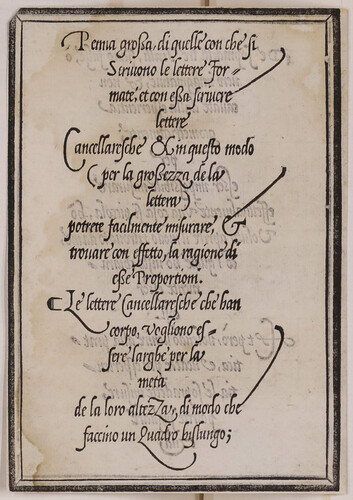 Penna grossa, di quelle con che si
Scrivono le lettere for=
mate, et con essa scrivere
lettere
Cancellaresche & in questo modo
( per la grossezza de la
lettera )
potrete facilmente misurare, &
trovare con effetto, la ragione di
esse Proportioni.
Le lettere Cancellaresche che han
corpo, vogliono es=
sere larghe per la
metà
de la loro altezza, di modo che
faccino un Quadro bislungo;